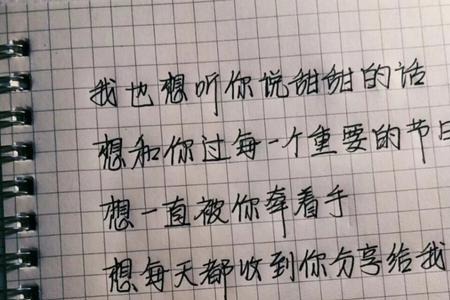 我也想听你说甜甜的话
想和你过每一个重要的节日
想一直被你牵着手
想每天都收到你分享给我